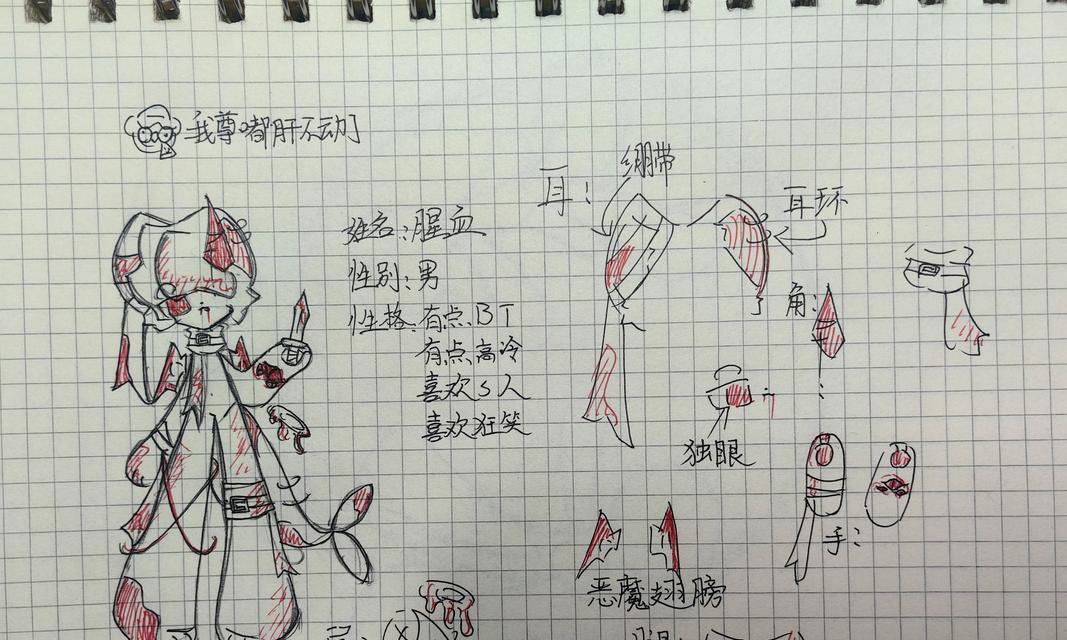 我尊嘟肝不动了
姓名:腥血
性别:男
性格:有点BT
有点高冷
喜欢S人
喜欢狂笑
耳:
绷带
耳环
角:
独眼
手:
恶魔翅膀